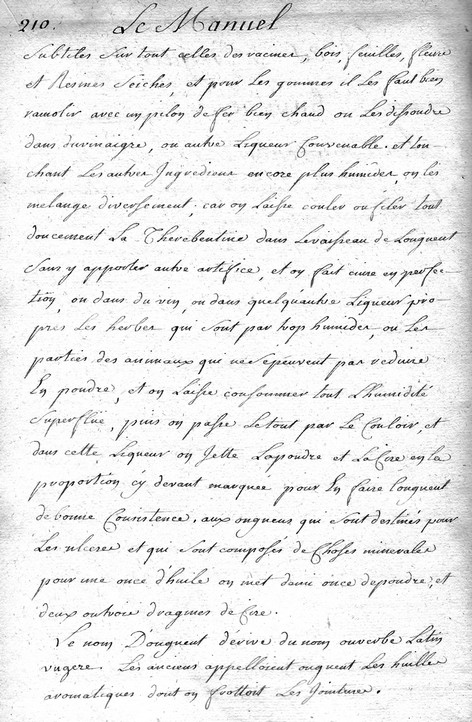 210. Le Manuel
Subtiles Sur tout celles des racines, bois, feuilles, fleurs
et Resines Seiches, et pour Les gommes il Les faut bien
ramolir avec un pilon de fer bien chaud ou Les dissoudre
dans du vinaigre, ou autre Liqueur Convenable. et tou-
chant Les autres Ingrediens encore plus humides, on les
mélange diversement; car on Laisse couler ou filer tout
doucement La Therebentine dans Le vaisseau de Longuent
Sans y apporter autre artifice, et on fait cuire en perfec-
tion, ou dans du vin, ou dans quelqu'autre Liqueur pro-
pres Les herbes qui Sont par trop humides, ou Les
parties des animaux qui ne Se peuvent pas reduire
En poudre, et on Laisse consommer tout L'humidité
Superflüe, puis on passe Le tout par Le Couloir, et
dans cette Liqueur on Jette La poudre et La Cire en La
proportion cy devant marquée pour En faire Longuent
de bonne Consistence. aux onguens qui Sont destinés pour
Les ulceres et qui Sont composés de Choses minerales
pour une once d'huile on met demi once de poudre, et
deux ou trois dragmes de Cire.
Le nom Donguent dérive du nom ou verbe Latin
ungere. Les anciens appelloient onguent Les huilles
aromatiques dont on frottoit Les Jointures.